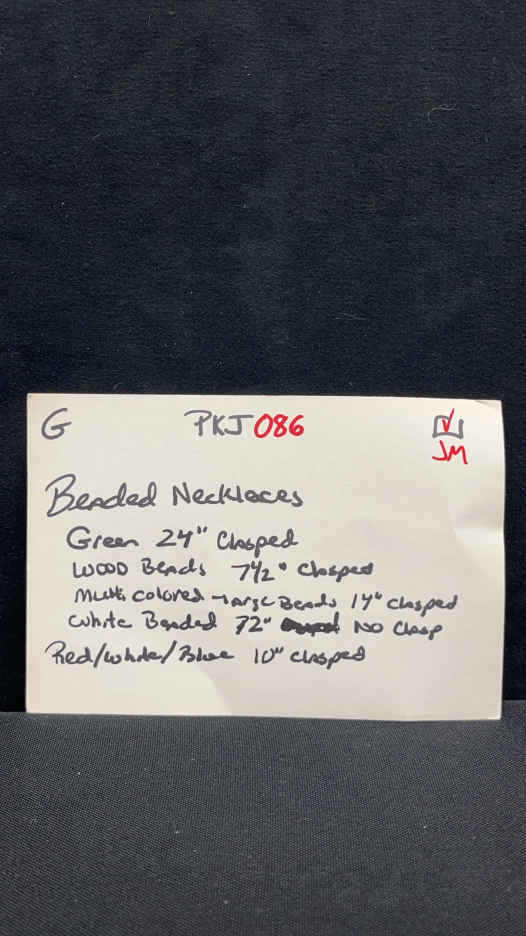 G PKJ 086
JM
Beaded Necklaces
Green 24" Clasped
Wood Beads 7 1/2" Clasped
Multi colored Large Beads 14" clasped
White Beaded 72" No Clasp
Red/White/Blue 10" clasped